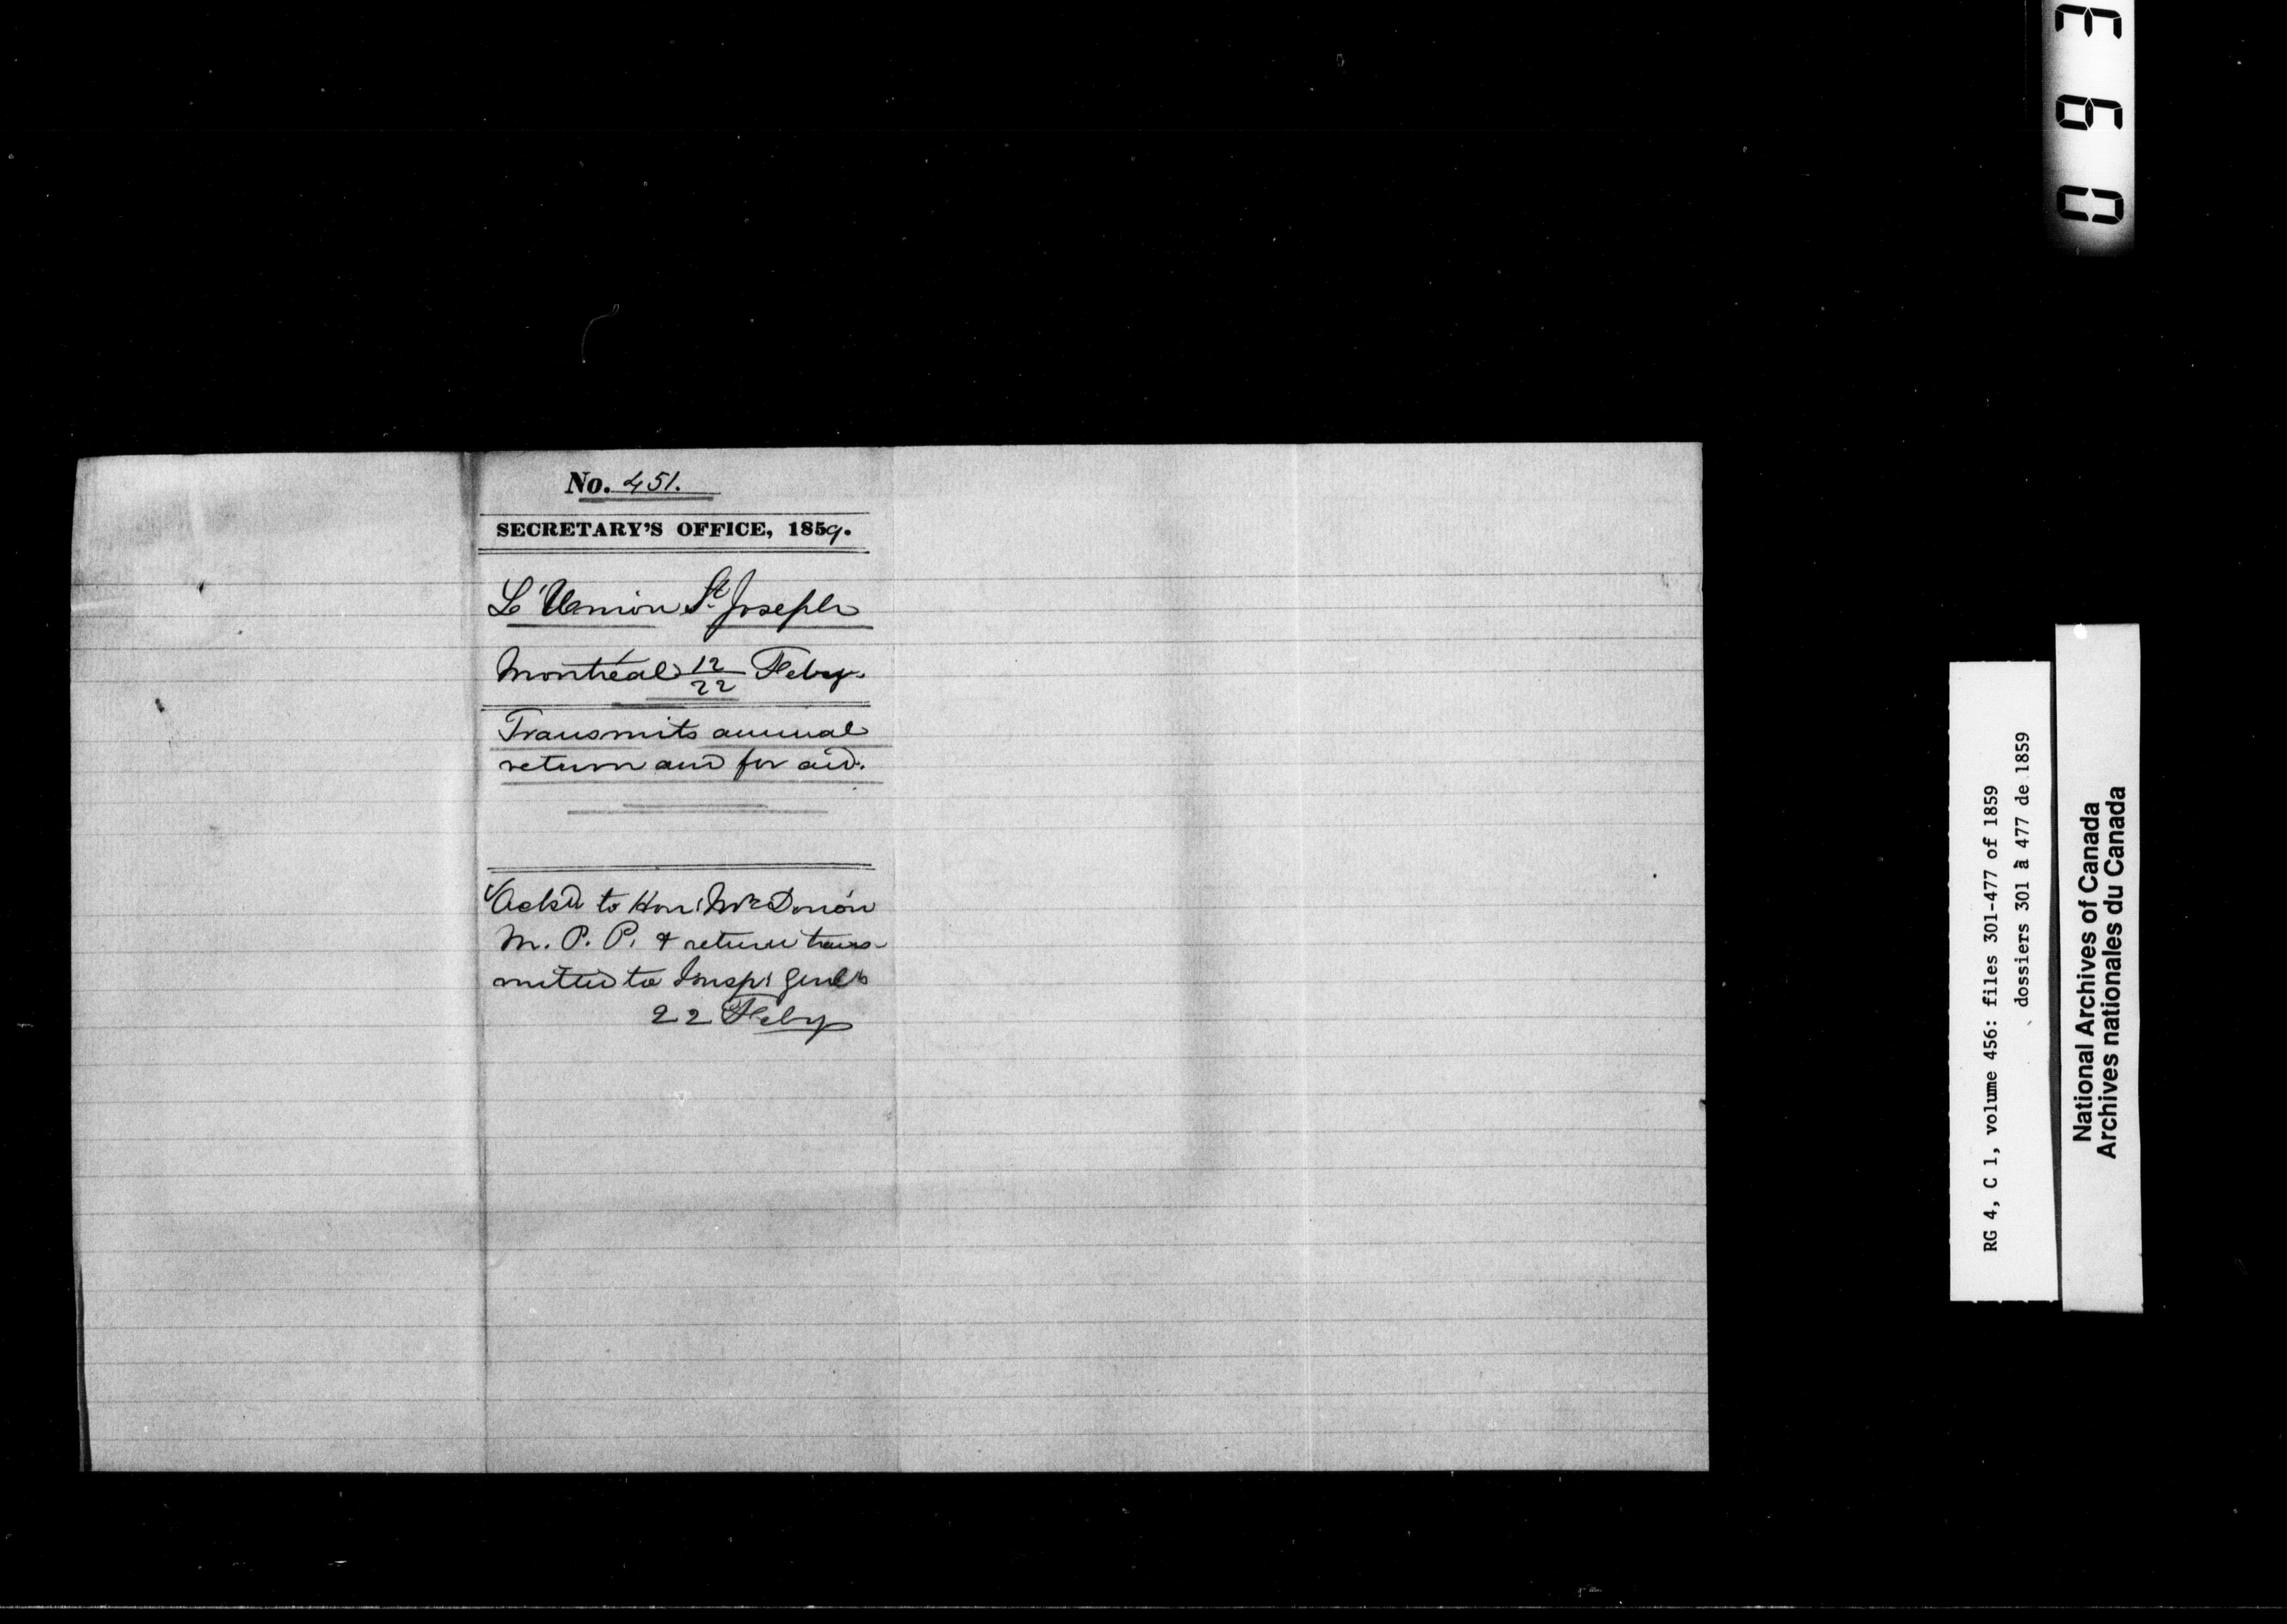 No. 451.
SECRETARY'S OFFICE, 1859.
L'Union St. Joseph
Montréal 12/22 Feby.
Transmits annual
return and for aid.
Ackd to Hon: Mr Dorion
M. P. P. & return trans-
mitted to Insp: Genl
22 Feby
RG 4, C 1, volume 456: files 301-477 of 1859
dossiers 301 à 477 de 1859
National Archives of Canada
Archives nationales du Canada